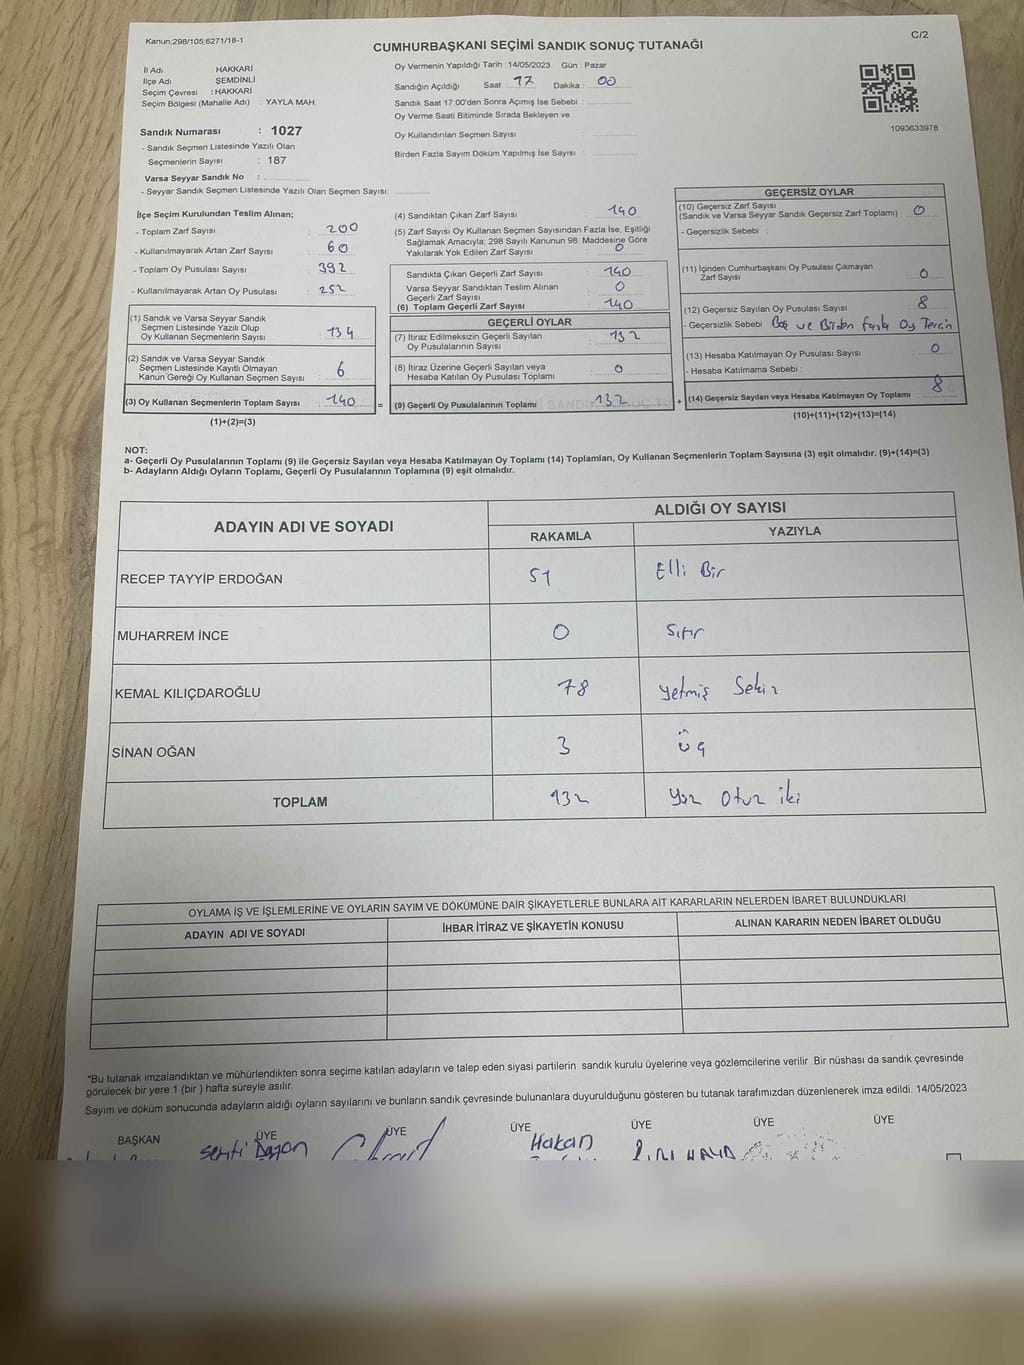 Kanun;298/105;6271/18-1
C/2
CUMHURBAŞKANI SEÇİMİ SANDIK SONUÇ TUTANAĞI
İl Adı HAKKARİ
İlçe Adı ŞEMDİNLİ
Seçim Çevresi : HAKKARİ
Seçim Bölgesi (Mahalle Adı) : YAYLA MAH.
Sandık Numarası : 1027
- Sandık Seçmen Listesinde Yazılı Olan
Seçmenlerin Sayısı : 187
Varsa Seyyar Sandık No :
- Seyyar Sandık Seçmen Listesinde Yazılı Olan Seçmen Sayısı:
Oy Vermenin Yapıldığı Tarih : 14/05/2023 Gün : Pazar
Sandığın Açıldığı Saat : 17 Dakika : 00
Sandık Saat 17:00'den Sonra Açımış İse Sebebi :
Oy Verme Saati Bitiminde Sırada Bekleyen ve
Oy Kullandırılan Seçmen Sayısı :
Birden Fazla Sayım Döküm Yapılmış İse Sayısı :
1093633978
İlçe Seçim Kurulundan Teslim Alınan;
- Toplam Zarf Sayısı : 200
- Kullanılmayarak Artan Zarf Sayısı : 60
- Toplam Oy Pusulası Sayısı : 392
- Kullanılmayarak Artan Oy Pusulası : 252
(1) Sandık ve Varsa Seyyar Sandık
Seçmen Listesinde Yazılı Olup
Oy Kullanan Seçmenlerin Sayısı : 134
(2) Sandık ve Varsa Seyyar Sandık
Seçmen Listesinde Kayıtlı Olmayan
Kanun Gereği Oy Kullanan Seçmen Sayısı : 6
(3) Oy Kullanan Seçmenlerin Toplam Sayısı : 140 =
(1)+(2)=(3)
(4) Sandıktan Çıkan Zarf Sayısı : 140
(5) Zarf Sayısı Oy Kullanan Seçmen Sayısından Fazla İse, Eşitliği
Sağlamak Amacıyla; 298 Sayılı Kanunun 98. Maddesine Göre
Yakılarak Yok Edilen Zarf Sayısı : 0
Sandıkta Çıkan Geçerli Zarf Sayısı : 140
Varsa Seyyar Sandıktan Teslim Alınan
Geçerli Zarf Sayısı : 0
(6) Toplam Geçerli Zarf Sayısı : 140
GEÇERLİ OYLAR
(7) İtiraz Edilmeksizin Geçerli Sayılan
Oy Pusulalarının Sayısı : 132
(8) İtiraz Üzerine Geçerli Sayılan veya
Hesaba Katılan Oy Pusulası Toplamı : 0
(9) Geçerli Oy Pusulalarının Toplamı : 132 +
GEÇERSİZ OYLAR
(10) Geçersiz Zarf Sayısı
(Sandık ve Varsa Seyyar Sandık Geçersiz Zarf Toplamı) : 0
- Geçersizlik Sebebi :
(11) İçinden Cumhurbaşkanı Oy Pusulası Çıkmayan
Zarf Sayısı : 0
(12) Geçersiz Sayılan Oy Pusulası Sayısı : 8
- Geçersizlik Sebebi : Boş ve Birden fazla Oy Tercih
(13) Hesaba Katılmayan Oy Pusulası Sayısı : 0
- Hesaba Katılmama Sebebi :
(14) Geçersiz Sayılan veya Hesaba Katılmayan Oy Toplamı : 8
(10)+(11)+(12)+(13)=(14)
NOT:
a- Geçerli Oy Pusulalarının Toplamı (9) ile Geçersiz Sayılan veya Hesaba Katılmayan Oy Toplamı (14) Toplamları, Oy Kullanan Seçmenlerin Toplam Sayısına (3) eşit olmalıdır. (9)+(14)=(3)
b- Adayların Aldığı Oyların Toplamı, Geçerli Oy Pusulalarının Toplamına (9) eşit olmalıdır.
ADAYIN ADI VE SOYADI ALDIĞI OY SAYISI
RAKAMLA YAZIYLA
RECEP TAYYİP ERDOĞAN 51 Elli Bir
MUHARREM İNCE 0 Sıfır
KEMAL KILIÇDAROĞLU 78 Yetmiş Sekiz
SİNAN OĞAN 3 Üç
TOPLAM 132 Yüz Otuz iki
OYLAMA İŞ VE İŞLEMLERİNE VE OYLARIN SAYIM VE DÖKÜMÜNE DAİR ŞİKAYETLERLE BUNLARA AİT KARARLARIN NELERDEN İBARET BULUNDUKLARI
ADAYIN ADI VE SOYADI İHBAR İTİRAZ VE ŞİKAYETİN KONUSU ALINAN KARARIN NEDEN İBARET OLDUĞU
"Bu tutanak imzalandıktan ve mühürlendikten sonra seçime katılan adayların ve talep eden siyasi partilerin sandık kurulu üyelerine veya gözlemcilerine verilir .Bir nüshası da sandık çevresinde
görülecek bir yere 1 (bir ) hafta süreyle asılır.
Sayım ve döküm sonucunda adayların aldığı oyların sayılarını ve bunların sandık çevresinde bulunanlara duyurulduğunu gösteren bu tutanak tarafımızdan düzenlenerek imza edildi. 14/05/2023
BAŞKAN ÜYE ÜYE ÜYE ÜYE ÜYE ÜYE
Hakan